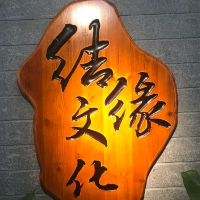 结缘
文化